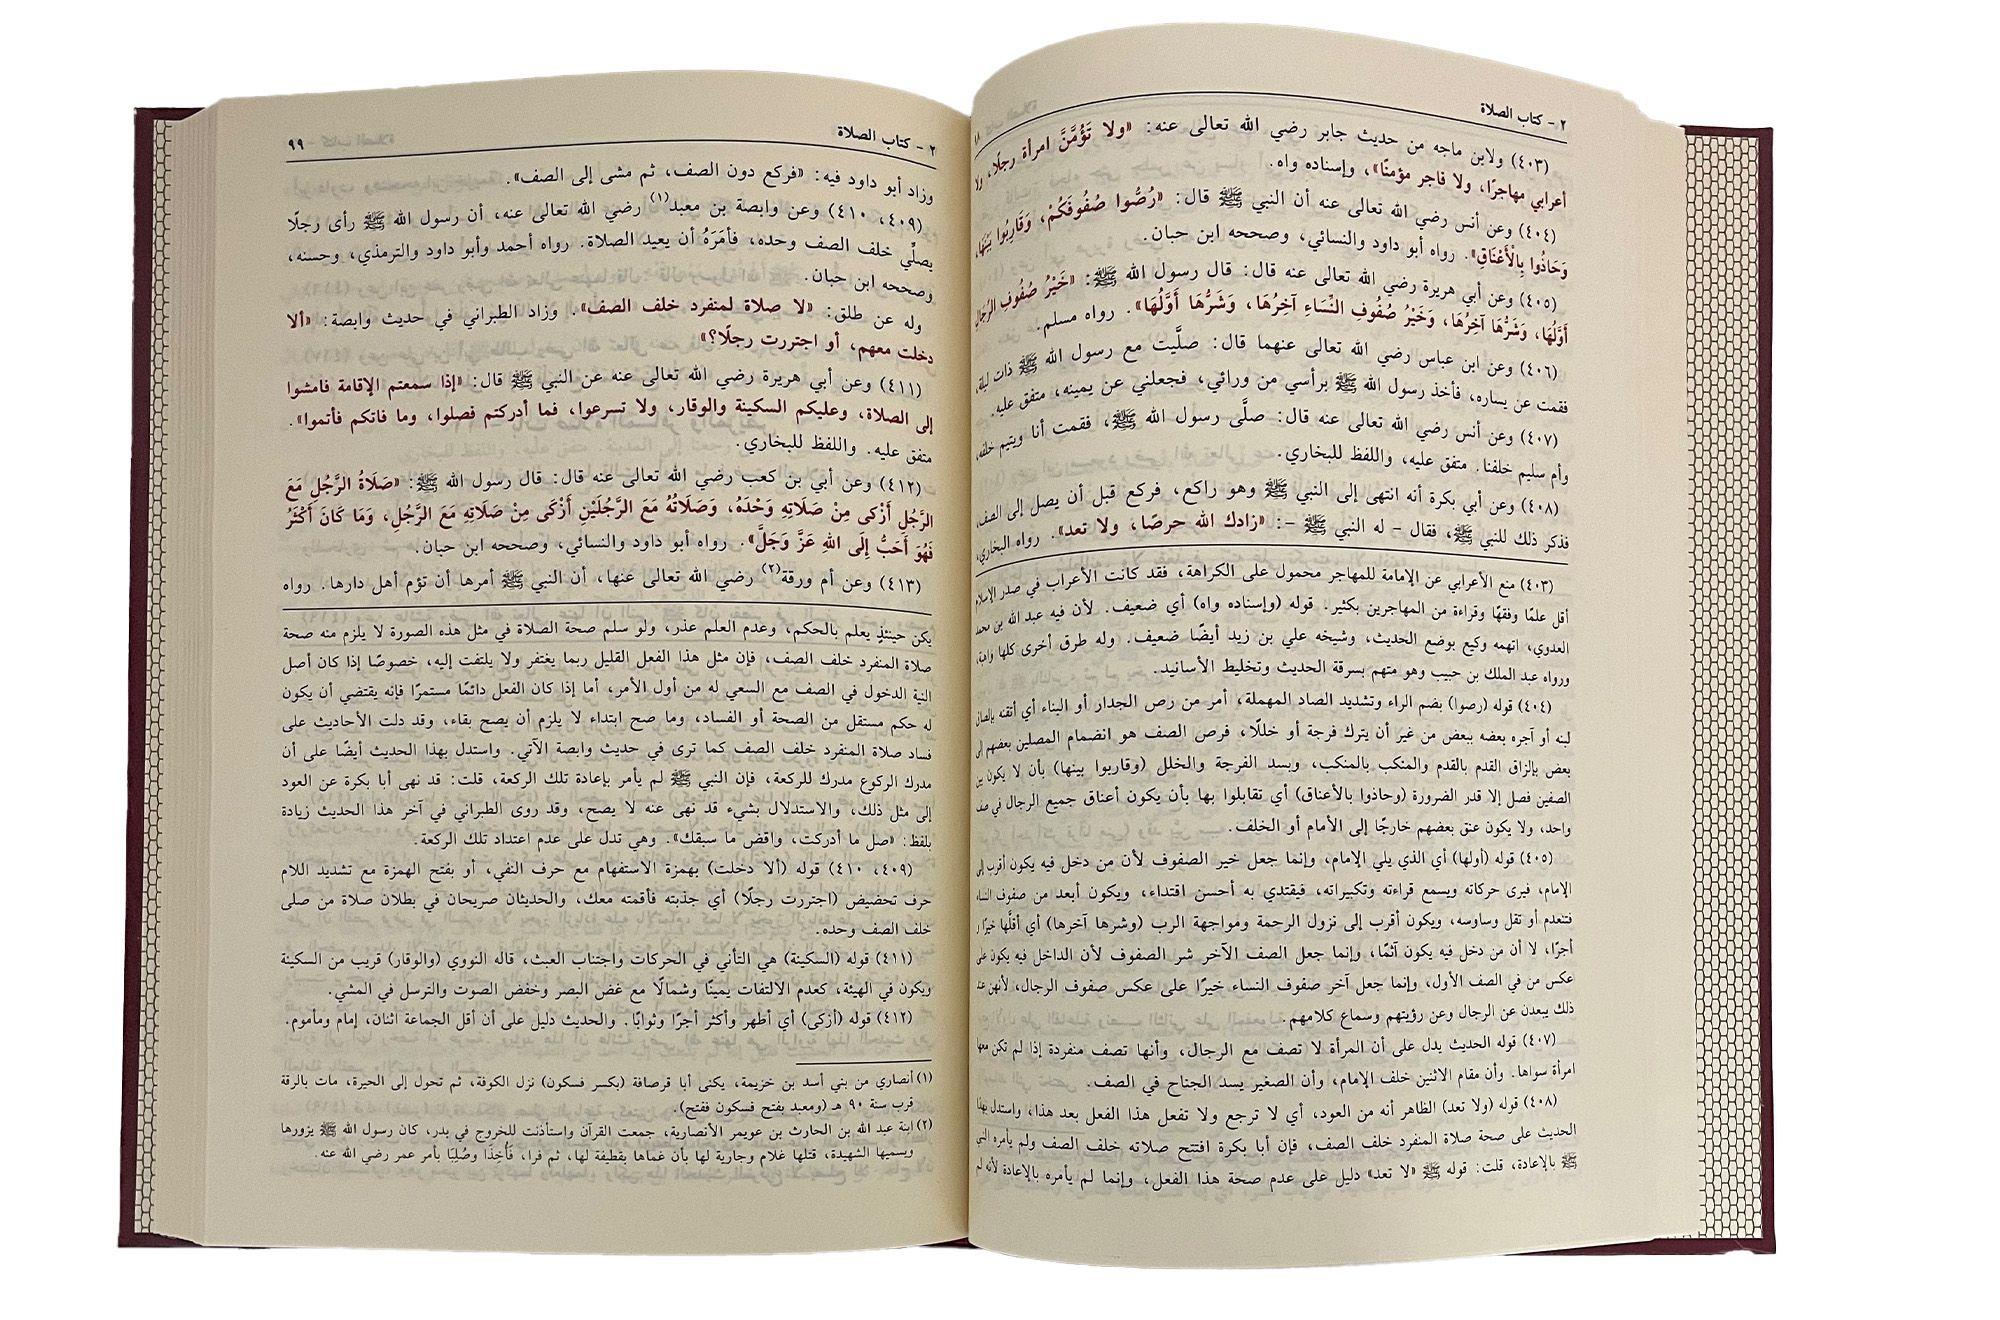 ٢ - كتاب الصلاة
(٤٠٣) ولابن ماجه من حديث جابر رضي الله تعالى عنه: «ولا تَؤُمَّنَّ امرأة رجلًا، ولا
أعرابي مهاجرًا، ولا فاجر مؤمنًا»، وإسناده واه.
(٤٠٤) وعن أنس رضي الله تعالى عنه أن النبي ﷺ قال: «رُصُّوا صُفُوفَكُمْ، وَقَارِبُوا بَيْنَهَا،
وَحَاذُوا بِالْأَعْنَاقِ». رواه أبو داود والنسائي، وصححه ابن حبان.
(٤٠٥) وعن أبي هريرة رضي الله تعالى عنه قال: قال رسول الله ﷺ: «خَيْرُ صُفُوفِ الرِّجَالِ
أَوَّلُهَا، وَشَرُّهَا آخِرُهَا، وَخَيْرُ صُفُوفِ النِّسَاءِ آخِرُهَا، وَشَرُّهَا أَوَّلُهَا». رواه مسلم.
(٤٠٦) وعن ابن عباس رضي الله تعالى عنهما قال: صلَّيت مع رسول الله ﷺ ذات ليلة،
فقمت عن يساره، فأخذ رسول الله ﷺ برأسي من ورائي، فجعلني عن يمينه، متفق عليه.
(٤٠٧) وعن أنس رضي الله تعالى عنه قال: صلَّى رسول الله ﷺ، فقمت أنا ويتيم خلفه،
وأم سليم خلفنا. متفق عليه، واللفظ للبخاري.
(٤٠٨) وعن أبي بكرة أنه انتهى إلى النبي ﷺ وهو راكع، فركع قبل أن يصل إلى الصف،
فذكر ذلك للنبي ﷺ، فقال - له النبي ﷺ -: «زادك الله حرصًا، ولا تعد». رواه البخاري،
(٤٠٣) منع الأعرابي عن الإمامة للمهاجر محمول على الكراهة، فقد كانت الأعراب في صدر الإسلام
أقل علمًا وفقهًا وقراءة من المهاجرين بكثير. قوله (وإسناده واه) أي ضعيف. لأن فيه عبد الله بن محمد
العدوي، اتهمه وكيع بوضع الحديث، وشيخه علي بن زيد أيضًا ضعيف. وله طرق أخرى كلها واهية،
ورواه عبد الملك بن حبيب وهو متهم بسرقة الحديث وتخليط الأسانيد.
(٤٠٤) قوله (رصوا) بضم الراء وتشديد الصاد المهملة، أمر من رص الجدار أو البناء أي أتقنه بإلصاق
لبنه أو آجره بعضه ببعض من غير أن يترك فرجة أو خللًا، فرص الصف هو انضمام المصلين بعضهم إلى
بعض بإلزاق القدم بالقدم والمنكب بالمنكب، وبسد الفرجة والخلل (وقاربوا بينها) بأن لا يكون بين
الصفين فصل إلا قدر الضرورة (وحاذوا بالأعناق) أي تقابلوا بها بأن يكون أعناق جميع الرجال في صف
واحد، ولا يكون عنق بعضهم خارجًا إلى الأمام أو الخلف.
(٤٠٥) قوله (أولها) أي الذي يلي الإمام، وإنما جعل خير الصفوف لأن من دخل فيه يكون أقرب إلى
الإمام، فيرى حركاته ويسمع قراءته وتكبيراته، فيقتدي به أحسن اقتداء، ويكون أبعد من صفوف النساء
فتنعدم أو تقل وساوسه، ويكون أقرب إلى نزول الرحمة ومواجهة الرب (وشرها آخرها) أي أقلَّها خيرًا و
أجرًا، لا أن من دخل فيه يكون آثمًا، وإنما جعل الصف الآخر شر الصفوف لأن الداخل فيه يكون على
عكس من في الصف الأول، وإنما جعل آخر صفوف النساء خيرًا على عكس صفوف الرجال، لأنهن عند
ذلك يبعدن عن الرجال وعن رؤيتهم وسماع كلامهم.
(٤٠٧) قوله الحديث يدل على أن المرأة لا تصف مع الرجال، وأنها تصف منفردة إذا لم تكن معها
امرأة سواها. وأن مقام الاثنين خلف الإمام، وأن الصغير يسد الجناح في الصف.
(٤٠٨) قوله (ولا تعد) الظاهر أنه من العود، أي لا ترجع ولا تفعل هذا الفعل بعد هذا، واستدل بهذا
الحديث على صحة صلاة المنفرد خلف الصف، فإن أبا بكرة افتتح صلاته خلف الصف ولم يأمره النبي
ﷺ بالإعادة، قلت: قوله ﷺ «لا تعد» دليل على عدم صحة هذا الفعل، وإنما لم يأمره بالإعادة لأنه لم
٢ - كتاب الصلاة ٩٩
وزاد أبو داود فيه: «فركع دون الصف، ثم مشى إلى الصف».
(٤٠٩، ٤١٠) وعن وابصة بن معبد(١) رضي الله تعالى عنه، أن رسول الله ﷺ رأى رجلًا
يصلِّي خلف الصف وحده، فأمَرَهُ أن يعيد الصلاة. رواه أحمد وأبو داود والترمذي، وحسنه،
وصححه ابن حبان.
وله عن طلق: «لا صلاة لمنفرد خلف الصف». وزاد الطبراني في حديث وابصة: «ألا
دخلت معهم، أو اجتررت رجلًا؟»
(٤١١) وعن أبي هريرة رضي الله تعالى عنه عن النبي ﷺ قال: «إذا سمعتم الإقامة فامشوا
إلى الصلاة، وعليكم السكينة والوقار، ولا تسرعوا، فما أدركتم فصلوا، وما فاتكم فأتموا».
متفق عليه. واللفظ للبخاري.
(٤١٢) وعن أبيّ بن كعب رضي الله تعالى عنه قال: قال رسول الله ﷺ: «صَلَاةُ الرَّجُلِ مَعَ
الرَّجُلِ أَزْكى مِنْ صَلَاتِهِ وَحْدَهُ، وَصَلَاتُهُ مَعَ الرَّجُلَيْنِ أَزْكَى مِنْ صَلَاتِهِ مَعَ الرَّجُلِ، وَمَا كَانَ أَكْثَرُ
فَهُوَ أَحَبُّ إِلَى اللهِ عَزَّ وَجَلَّ». رواه أبو داود والنسائي، وصححه ابن حبان.
(٤١٣) وعن أم ورقة(٢) رضي الله تعالى عنها، أن النبي ﷺ أمرها أن تؤم أهل دارها. رواه
يكن حينئذٍ يعلم بالحكم، وعدم العلم عذر، ولو سلم صحة الصلاة في مثل هذه الصورة لا يلزم منه صحة
صلاة المنفرد خلف الصف، فإن مثل هذا الفعل القليل ربما يغتفر ولا يلتفت إليه، خصوصًا إذا كان أصل
النية الدخول في الصف مع السعي له من أول الأمر، أما إذا كان الفعل دائمًا مستمرًا فإنه يقتضي أن يكون
له حكم مستقل من الصحة أو الفساد، وما صح ابتداء لا يلزم أن يصح بقاء، وقد دلت الأحاديث على
فساد صلاة المنفرد خلف الصف كما ترى في حديث وابصة الآتي. واستدل بهذا الحديث أيضًا على أن
مدرك الركوع مدرك للركعة، فإن النبي ﷺ لم يأمر بإعادة تلك الركعة، قلت: قد نهى أبا بكرة عن العود
إلى مثل ذلك، والاستدلال بشيء قد نهى عنه لا يصح، وقد روى الطبراني في آخر هذا الحديث زيادة
بلفظ: «صل ما أدركت، واقض ما سبقك». وهي تدل على عدم اعتداد تلك الركعة.
(٤٠٩، ٤١٠) قوله (ألا دخلت) بهمزة الاستفهام مع حرف النفي، أو بفتح الهمزة مع تشديد اللام
حرف تحضيض (اجتررت رجلًا) أي جذبته فأقمته معك، والحديثان صريحان في بطلان صلاة من صلى
خلف الصف وحده.
(٤١١) قوله (السكينة) هي التأني في الحركات واجتناب العبث، قاله النووي (والوقار) قريب من السكينة
ويكون في الهيئة، كعدم الالتفات يمينًا وشمالًا مع غض البصر وخفض الصوت والترسل في المشي.
(٤١٢) قوله (أزكى) أي أطهر وأكثر أجرًا وثوابًا. والحديث دليل على أن أقل الجماعة اثنان، إمام ومأموم.
(١) أنصاري من بني أسد بن خزيمة، يكنى أبا قرصافة (بكسر فسكون) نزل الكوفة، ثم تحول إلى الحيرة، مات بالرقة
قرب سنة ٩٠ هـ (ومعبد بفتح فسكون ففتح).
(٢) ابنة عبد الله بن الحارث بن عويمر الأنصارية، جمعت القرآن واستأذنت للخروج في بدر، كان رسول الله ﷺ يزورها
ويسميها الشهيدة، قتلها غلام وجارية لها بأن غماها بقطيفة لها، ثم فرا، فَأُخِذَا وصُلِبَا بأمر عمر رضي الله عنه.